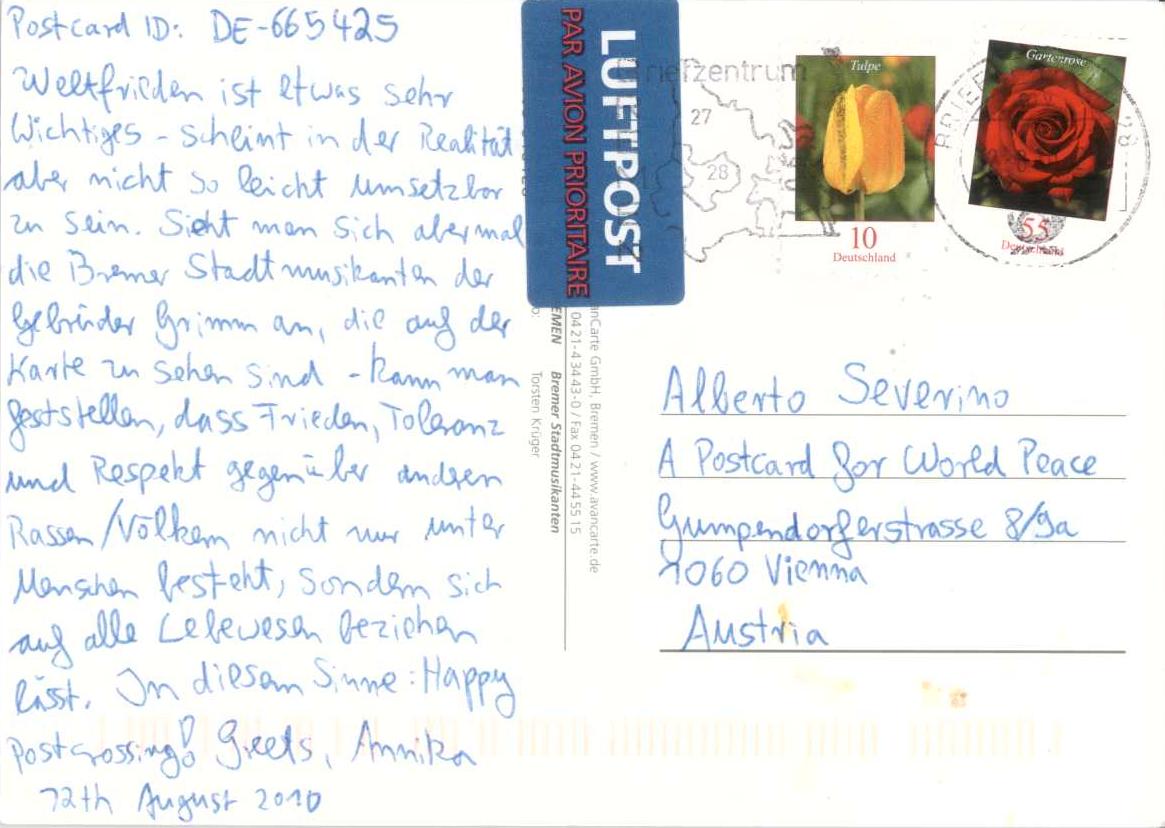 Postcard ID: DE-665425
Weltfrieden ist etwas sehr
Wichtiges - scheint in der Realität
aber nicht so leicht umsetzbar
zu sein. Sieht man sich abermal
die Bremer Stadtmusikanten der
Gebrüder Grimm an, die auf der
Karte zu sehen sind - kann man
feststellen, dass Frieden, Toleranz
und Respekt gegenüber anderen
Rassen/Völkern nicht nur unter
Menschen besteht, sondern sich
auf alle Lebewesen beziehen
lässt. In diesem Sinne: Happy
postcrossing! Greets, Annika
12th August 2010
LUFTPOST
PAR AVION PRIORITAIRE
anCarte GmbH, Bremen / www.avancarte.de
0421-43443-0 / Fax 0421-445515
EMEN Bremer Stadtmusikanten
o: Torsten Krüger
riefzentrum
27
28
Tulpe
10
Deutschland
Gartenrose
55
Deutschland
BRIEF
28
Alberto Severino
A Postcard for World Peace
Gumpendorferstrasse 8/9a
1060 Vienna
Austria